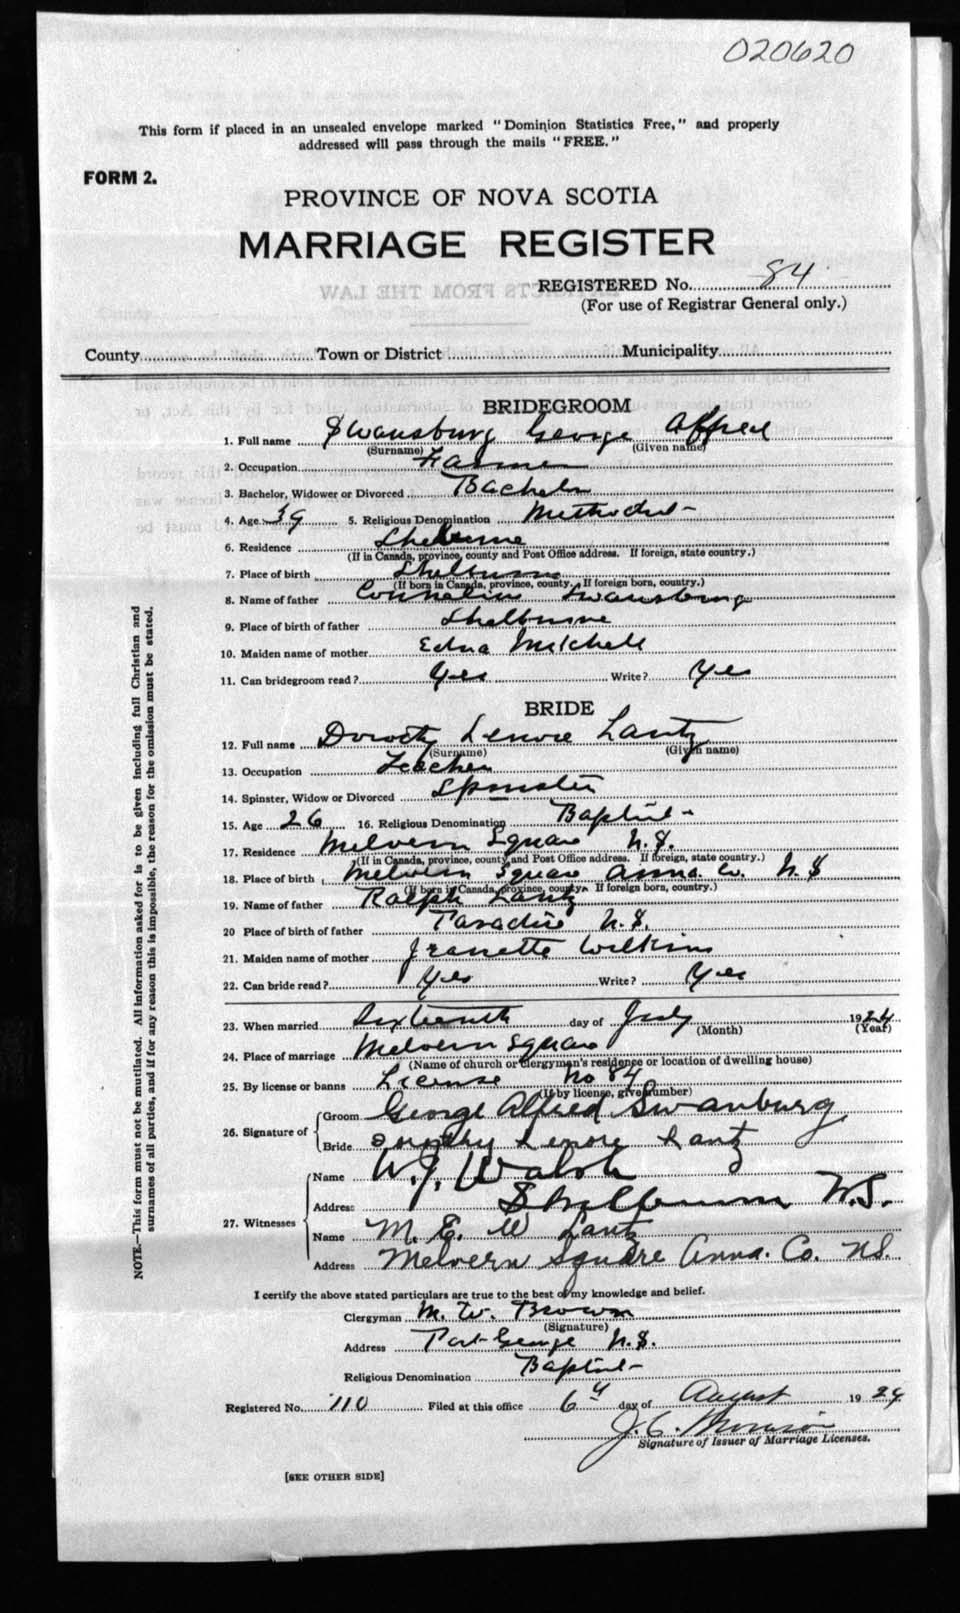 020620
This form if placed in an unsealed envelope marked "Dominion Statistics Free," and properly
addressed will pass through the mails "FREE."
FORM 2.
PROVINCE OF NOVA SCOTIA
MARRIAGE REGISTER
REGISTERED No. 84
(For use of Registrar General only.)
County Town or District Municipality
BRIDEGROOM
1. Full name Swansburg George Alfred
(Surname) (Given name)
2. Occupation Farmer
3. Bachelor, Widower or Divorced Bachelor
4. Age 39 5. Religious Denomination Methodist
6. Residence Shelburne
(If in Canada, province, county and Post Office address. If foreign, state country.)
7. Place of birth Shelburne
(If born in Canada, province, county. If foreign born, country.)
8. Name of father Cornelius Swansburg
9. Place of birth of father Shelburne
10. Maiden name of mother Edna Mitchell
11. Can bridegroom read? Yes Write? Yes
BRIDE
12. Full name Dorothy Lenore Lantz
(Surname) (Given name)
13. Occupation Teacher
14. Spinster, Widow or Divorced Spinster
15. Age 26 16. Religious Denomination Baptist
17. Residence Melvern Square N.S.
(If in Canada, province, county and Post Office address. If foreign, state country.)
18. Place of birth Melvern Square Anna. Co. N.S
(If born in Canada, province, county. If foreign born, country.)
19. Name of father Ralph Lantz
20 Place of birth of father Paradise N.S.
21. Maiden name of mother Jeanette Wilkins
22. Can bride read? Yes Write? Yes
23. When married Sixteenth day of July 1924
(Month) (Year)
24. Place of marriage Melvern Square
(Name of church or clergyman's residence or location of dwelling house)
25. By license or banns License No 84
(If by license, give number)
26. Signature of Groom George Alfred Swanburg
Bride Dorothy Lenore Lantz
27. Witnesses Name W. J. Walsh
Address Shelburne N.S.
Name M. E. W Lantz
Address Melvern Square Anna. Co. N.S.
I certify the above stated particulars are true to the best of my knowledge and belief.
Clergyman M. W. Brown
(Signature)
Address Port George N.S.
Religious Denomination Baptist
Registered No. 110 Filed at this office 6th day of August 1924
J. C.
Signature of Issuer of Marriage Licenses.
[SEE OTHER SIDE]
NOTE.—This form must not be mutilated. All information asked for is to be given including full Christian and
surnames of all parties, and if for any reason this is impossible, the reason for the omission must be stated.